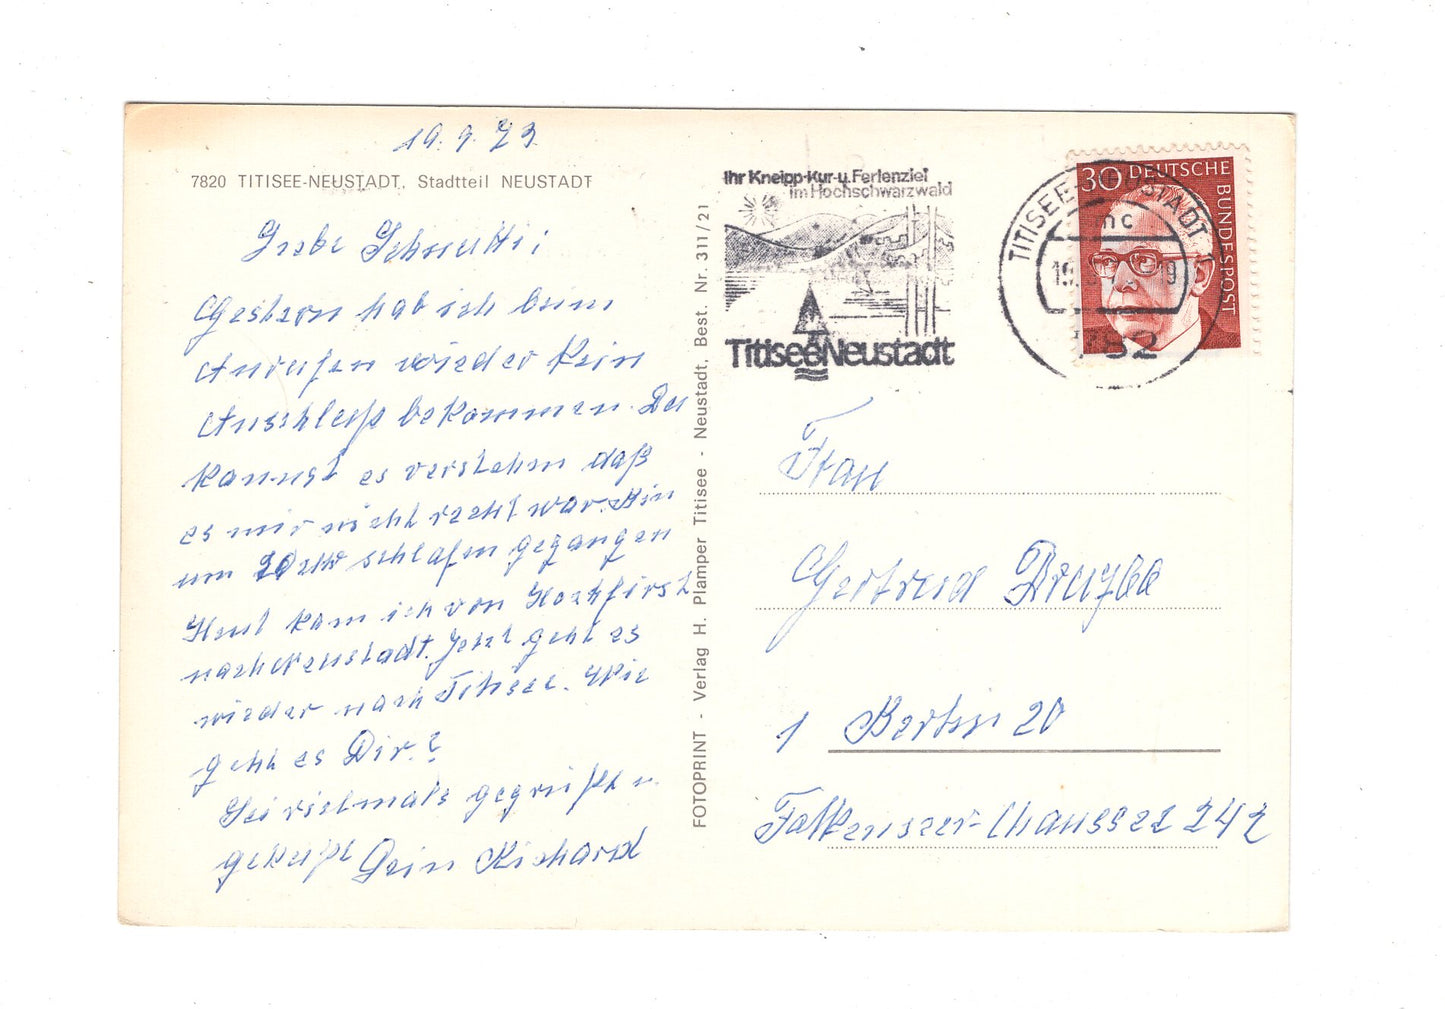 19.9.73
7820 TITISEE-NEUSTADT, Stadtteil NEUSTADT
Liebe Schnutti;
Gestern hab ich beim
Anrufen wieder kein
Anschluß bekommen. Du
kannst es verstehn daß
es mir nicht recht war. Bin
um 20 Uhr schlafen gegangen
Heut kam ich von Hochfirst
nach Neustadt. Jetzt geht es
wieder nach Titisee. Wie
geht es Dir?
Sei vielmals gegrüßt u.
geküßt Dein Richard
FOTOPRINT - Verlag H. Plamper Titisee - Neustadt, Best. Nr. 311/21
Ihr Kneipp-Kur-u. Ferienziel
im Hochschwarzwald
Titisee Neustadt
TITISEE-NEUSTADT 1
mc
782
30 DEUTSCHE
BUNDESPOST
Frau
Gertrud
1 Berlin 20
Falkenseer-Chaussee 242